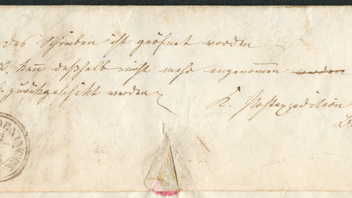 das Schreiben ist geöfnet worden
kan deßhalb nicht mehr angenomen werden
zurükgeschikt werden
K. Postexpedition